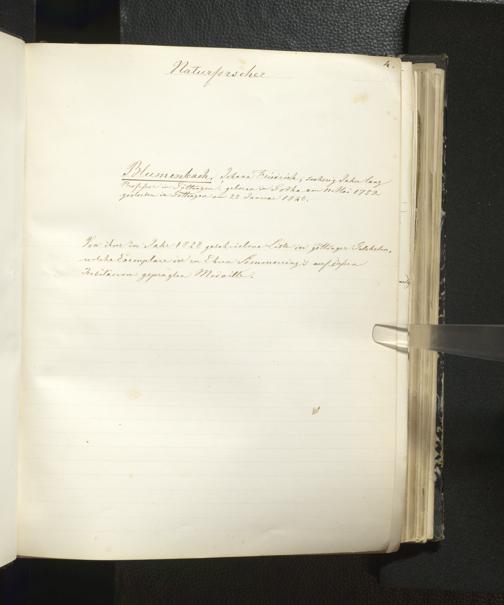 4.
Naturforscher
Blumenbach, Johann Friedrich, sechzig Jahre lang
Professor in Göttingen; geboren in Gotha am 11 Mai 1752
gestorben in Göttingen am 22 Januar 1840.
Von ihm im Jahr 1828 geschriebene Liste der göttinger
welche Exemplare der zu Ehren Sömmerring's auf dessen
Jubiläum geprägten Medaille